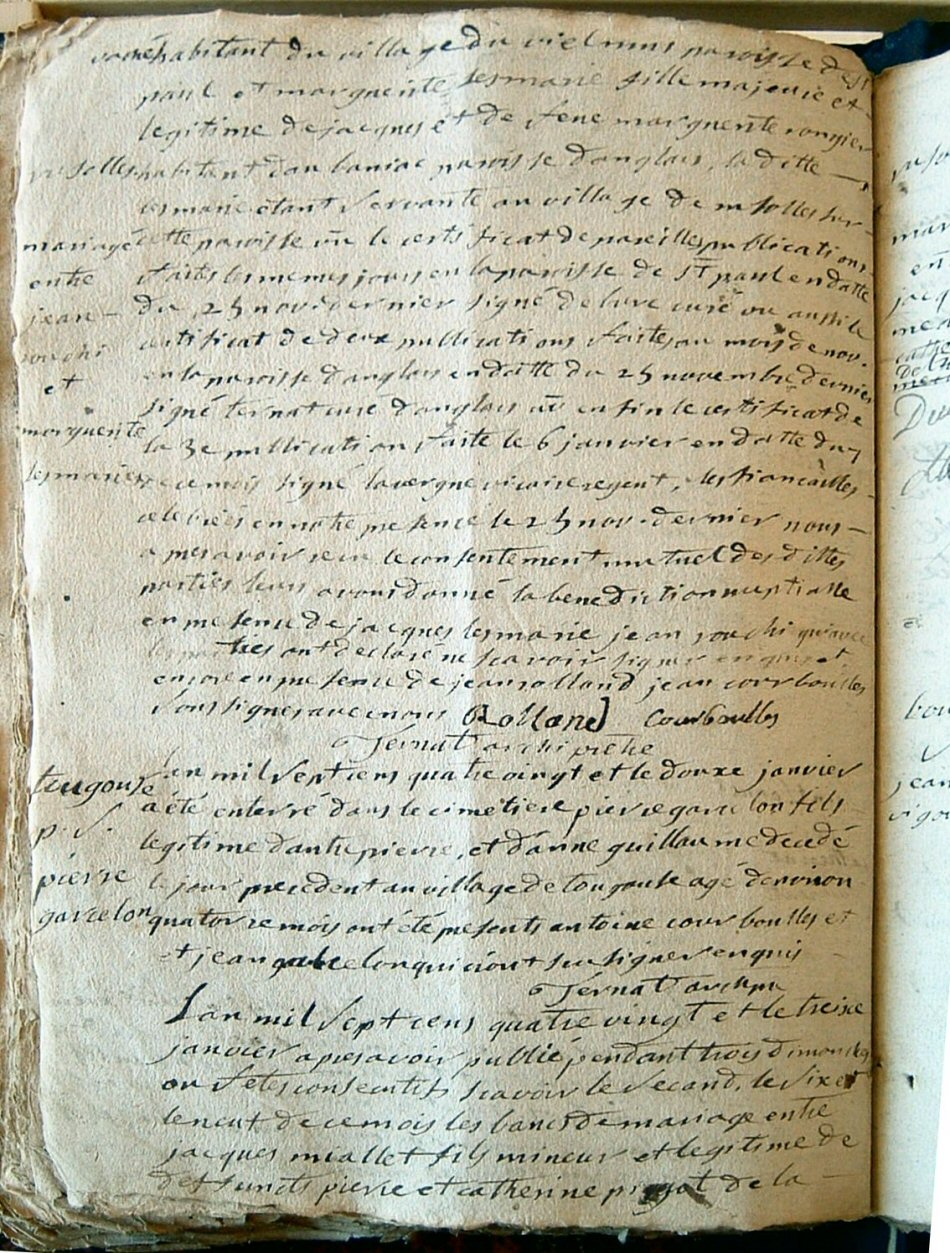 habitant du village du viel murs paroisse de st
paul et marguerite lesmarie fille majeure et
legitime de jacques et de feue marguerite rongier
habitent d'aubaniac paroisse d'anglais, la ditte
lesmarie étant servante au village de masolles sur
mariage cette paroisse vu le certificat de pareilles publications
entre faites les memes jours en la paroisse de st paul en datte
jean du 25 nov. dernier signé delure curé vu aussi le
certificat de deux publications faites au mois de nov.
et en la paroisse d'anglais en datte du 25 novembre dernier
signé ternat curé d'anglais vu enfin le certificat de
marguerite la 3e publication faite le 6 janvier en datte du 7
lesmaries de ce mois signé lavergne vicaire regent, les fiancailles
celebrées en notre presence le 25 nov. dernier nous
apres avoir recu le consentement mutuel des dittes
parties leurs avons donné la benediction nuptialle
en presence de jacques lesmarie jean rouchi qui avec
les parties ont declaré ne scavoir signer enquis et
encore en presence de jean rolland jean courboulles
soussignes avec nous Rolland Courboulles
Ternat archiprêtre
tougouse l'an mil sept cens quatre vingt et le douze janvier
p. s. a été enterré dans le cimetiere pierre garcelon fils
legitime d'autre pierre, et d'anne guillaume decedé
pierre le jour precedent au village de tougouse agé d'environ
garcelon quatorze mois ont été presents antoine courboulles et
et jean garcelon qui n'ont scu signer enquis
Ternat archipre
L'an mil sept cens quatre vingt et le treize
janvier apres avoir publié pendant trois dimanches
ou fetes consecutifs scavoir le second, le six et
le neuf de ce mois les bancs de mariage entre
jacques miallet fils mineur et legitime de
deffuncts pierre et catherine de la